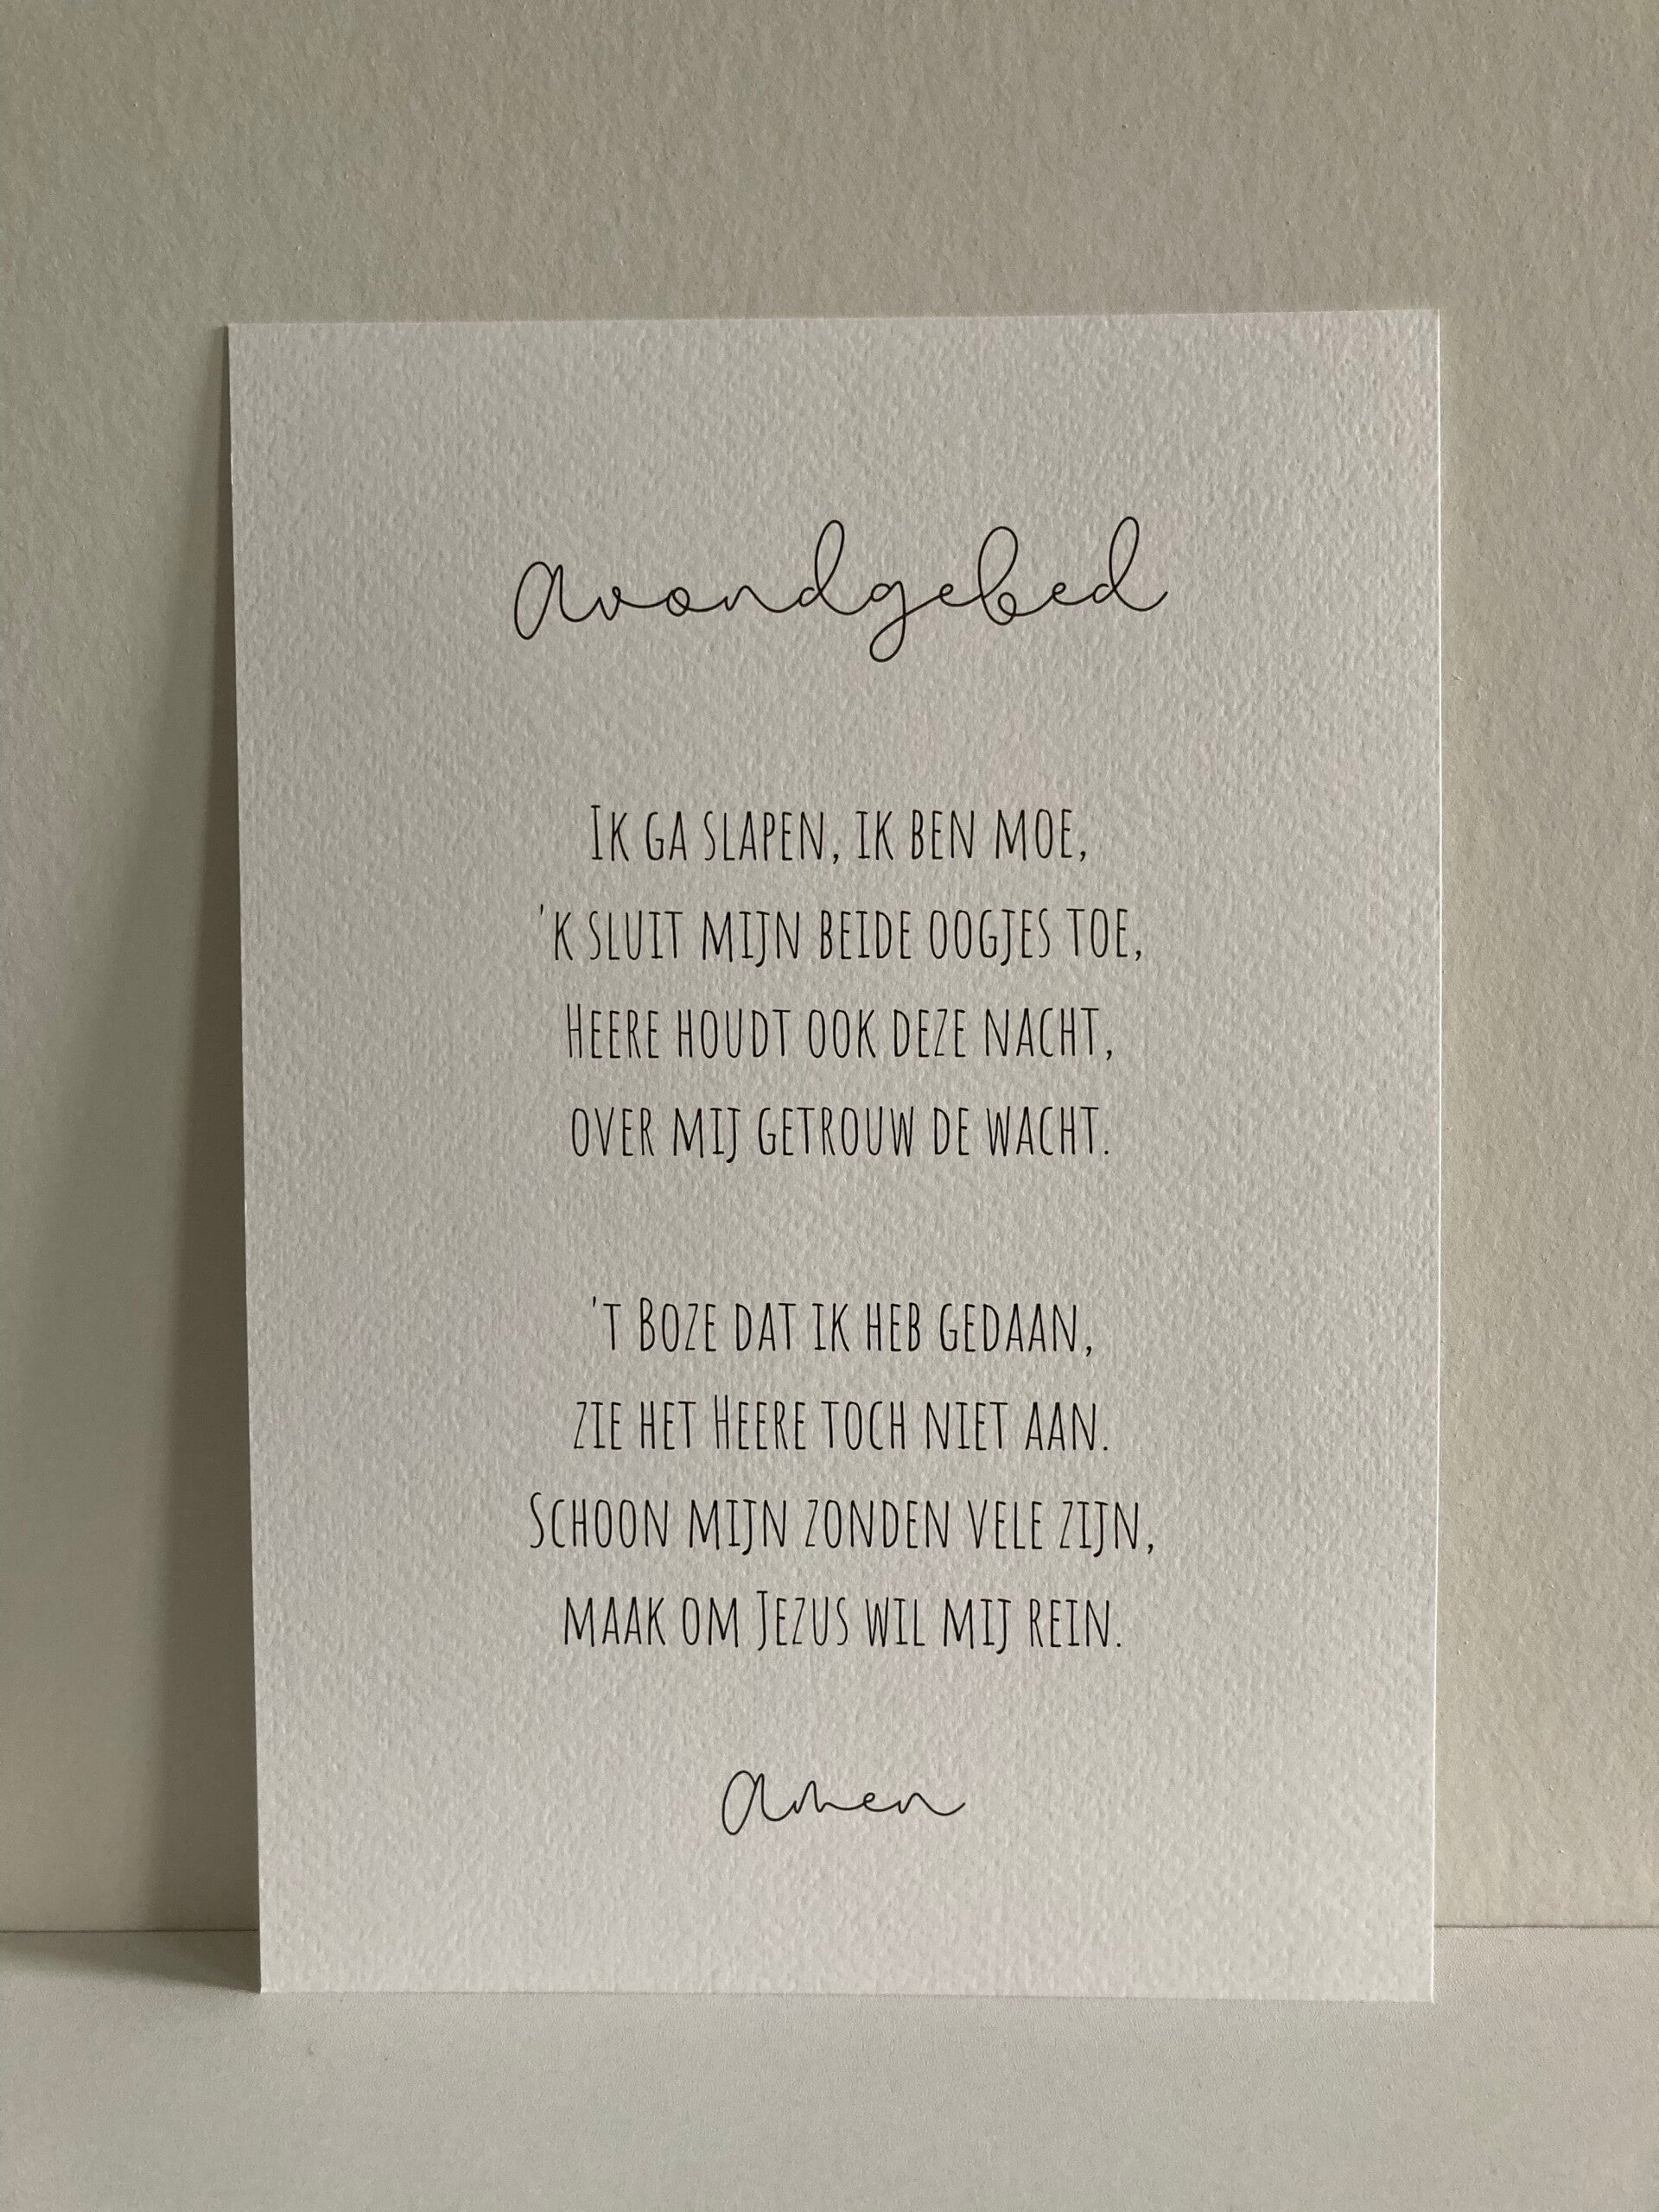 Avondgebed
Ik ga slapen, ik ben moe,
'k sluit mijn beide oogjes toe,
Heere houdt ook deze nacht,
over mij getrouw de wacht.
't Boze dat ik heb gedaan,
zie het Heere toch niet aan.
Schoon mijn zonden vele zijn,
maak om Jezus wil mij rein.
Amen